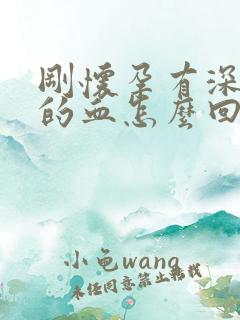 刚怀孕有深
的血怎麽回
小龟wang
未经同意禁止转载